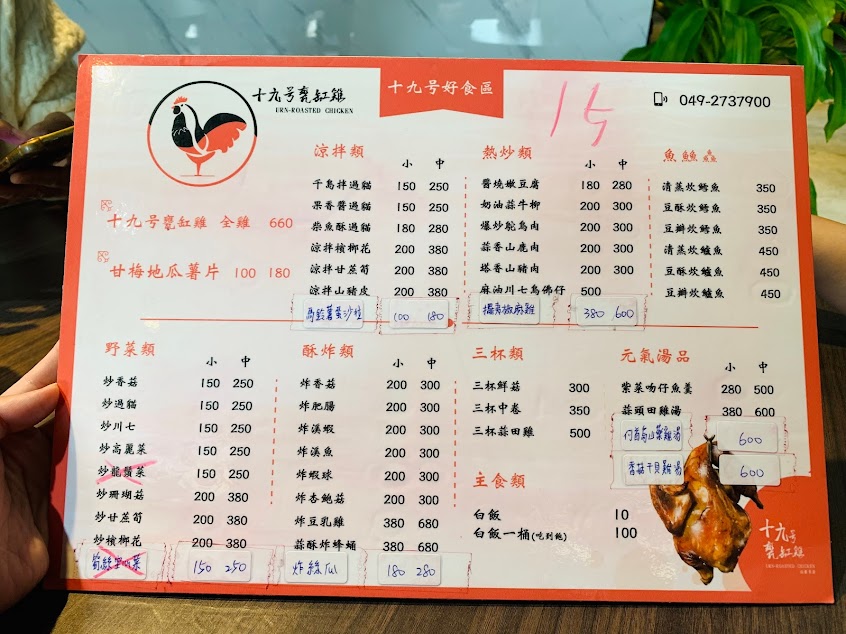 十九号好食區
十九号甕缸雞
URN-ROASTED CHICKEN
15
049-2737900
十九号甕缸雞 全雞 660
甘梅地瓜薯片 100 180
涼拌類 小 中
千島拌過貓 150 250
果香醬過貓 150 250
柴魚酥過貓 180 280
涼拌檳榔花 200 380
涼拌甘蔗筍 200 380
涼拌山豬皮 200 380
馬鈴薯蛋沙拉 100 180
熱炒類 小 中
醬燒嫩豆腐 180 280
奶油蒜牛柳 200 300
爆炒鴕鳥肉 200 300
蒜香山鹿肉 200 300
塔香山豬肉 200 300
麻油川七鳥佛仔 500
椒麻雞 380 600
魚鱻鱻
清蒸炊鱈魚 350
豆酥炊鱈魚 350
豆瓣炊鱈魚 350
清蒸炊鱸魚 450
豆酥炊鱸魚 450
豆瓣炊鱸魚 450
野菜類 小 中
炒香菇 150 250
炒過貓 150 250
炒川七 150 250
炒高麗菜 150 250
炒龍鬚菜 150 250
炒珊瑚菇 200 380
炒甘蔗筍 200 380
炒檳榔花 200 380
150 250
酥炸類 小 中
炸香菇 200 300
炸肥腸 200 300
炸溪蝦 200 300
炸溪魚 200 300
炸蝦球 200 300
炸杏鮑菇 200 300
炸豆乳雞 380 680
蒜酥炸蜂蛹 380 680
炸絲瓜 180 280
三杯類
三杯鮮菇 300
三杯中卷 350
三杯蒜田雞 500
主食類
白飯 10
白飯一桶(吃到飽) 100
元氣湯品 小 中
紫菜吻仔魚羹 280 500
蒜頭田雞湯 380 600
何首烏山藥雞湯 600
香菇干貝雞湯 600
十九号
甕缸雞
URN-ROASTED CHICKEN